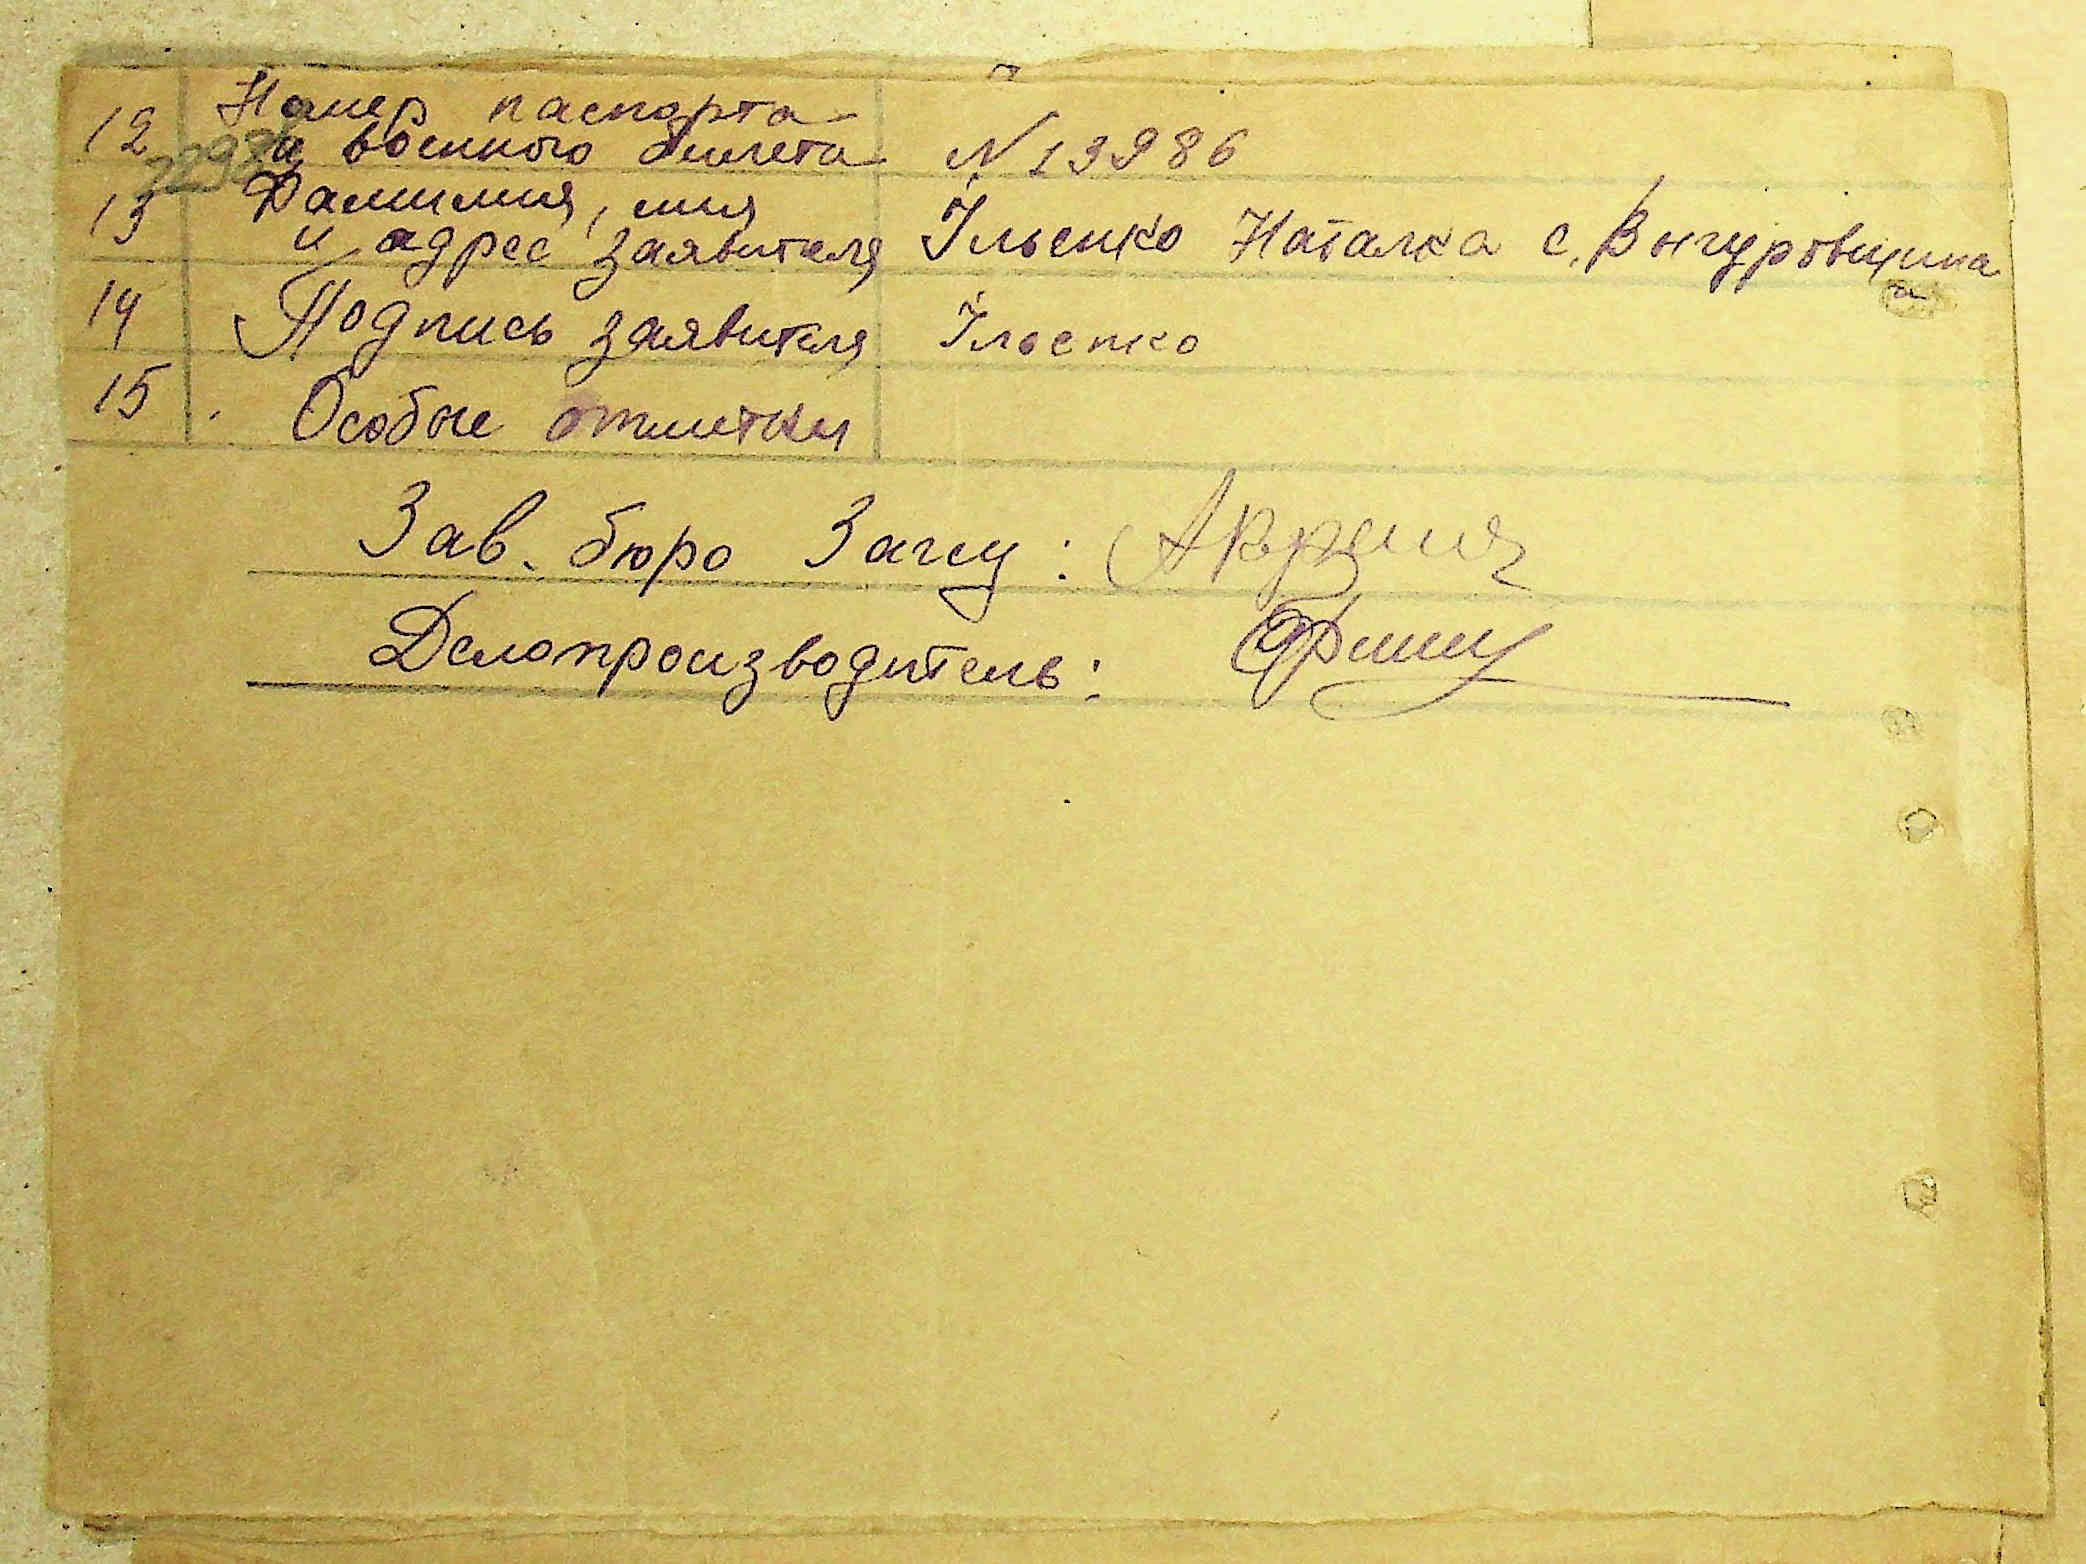 12 Номер паспорта
и военного билета N 13986
13 Фамилия, имя
и адрес заявителя Ільенко Наталка с. Вигуровщина
14 Подпись заявителя Ільенко
15 Особые отметки
Зав. бюро Загсу:
Делопроизводитель: